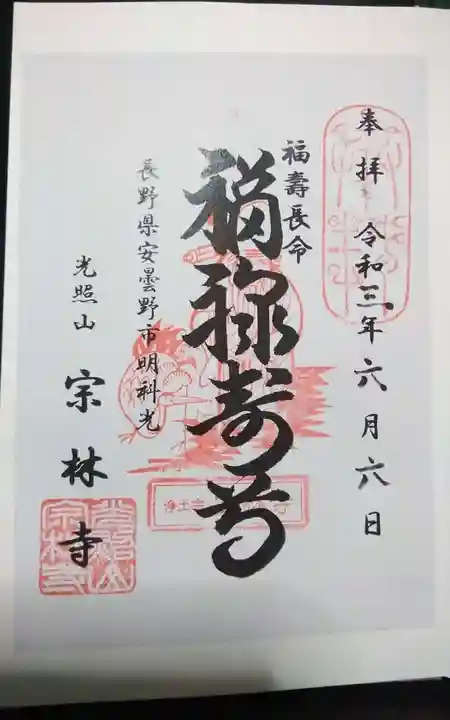 奉拝 令和三年六月六日
福壽長命
福禄寿尊
長野県安曇野市明科光
光照山 宗林寺
浄土宗
光照山
宗林寺